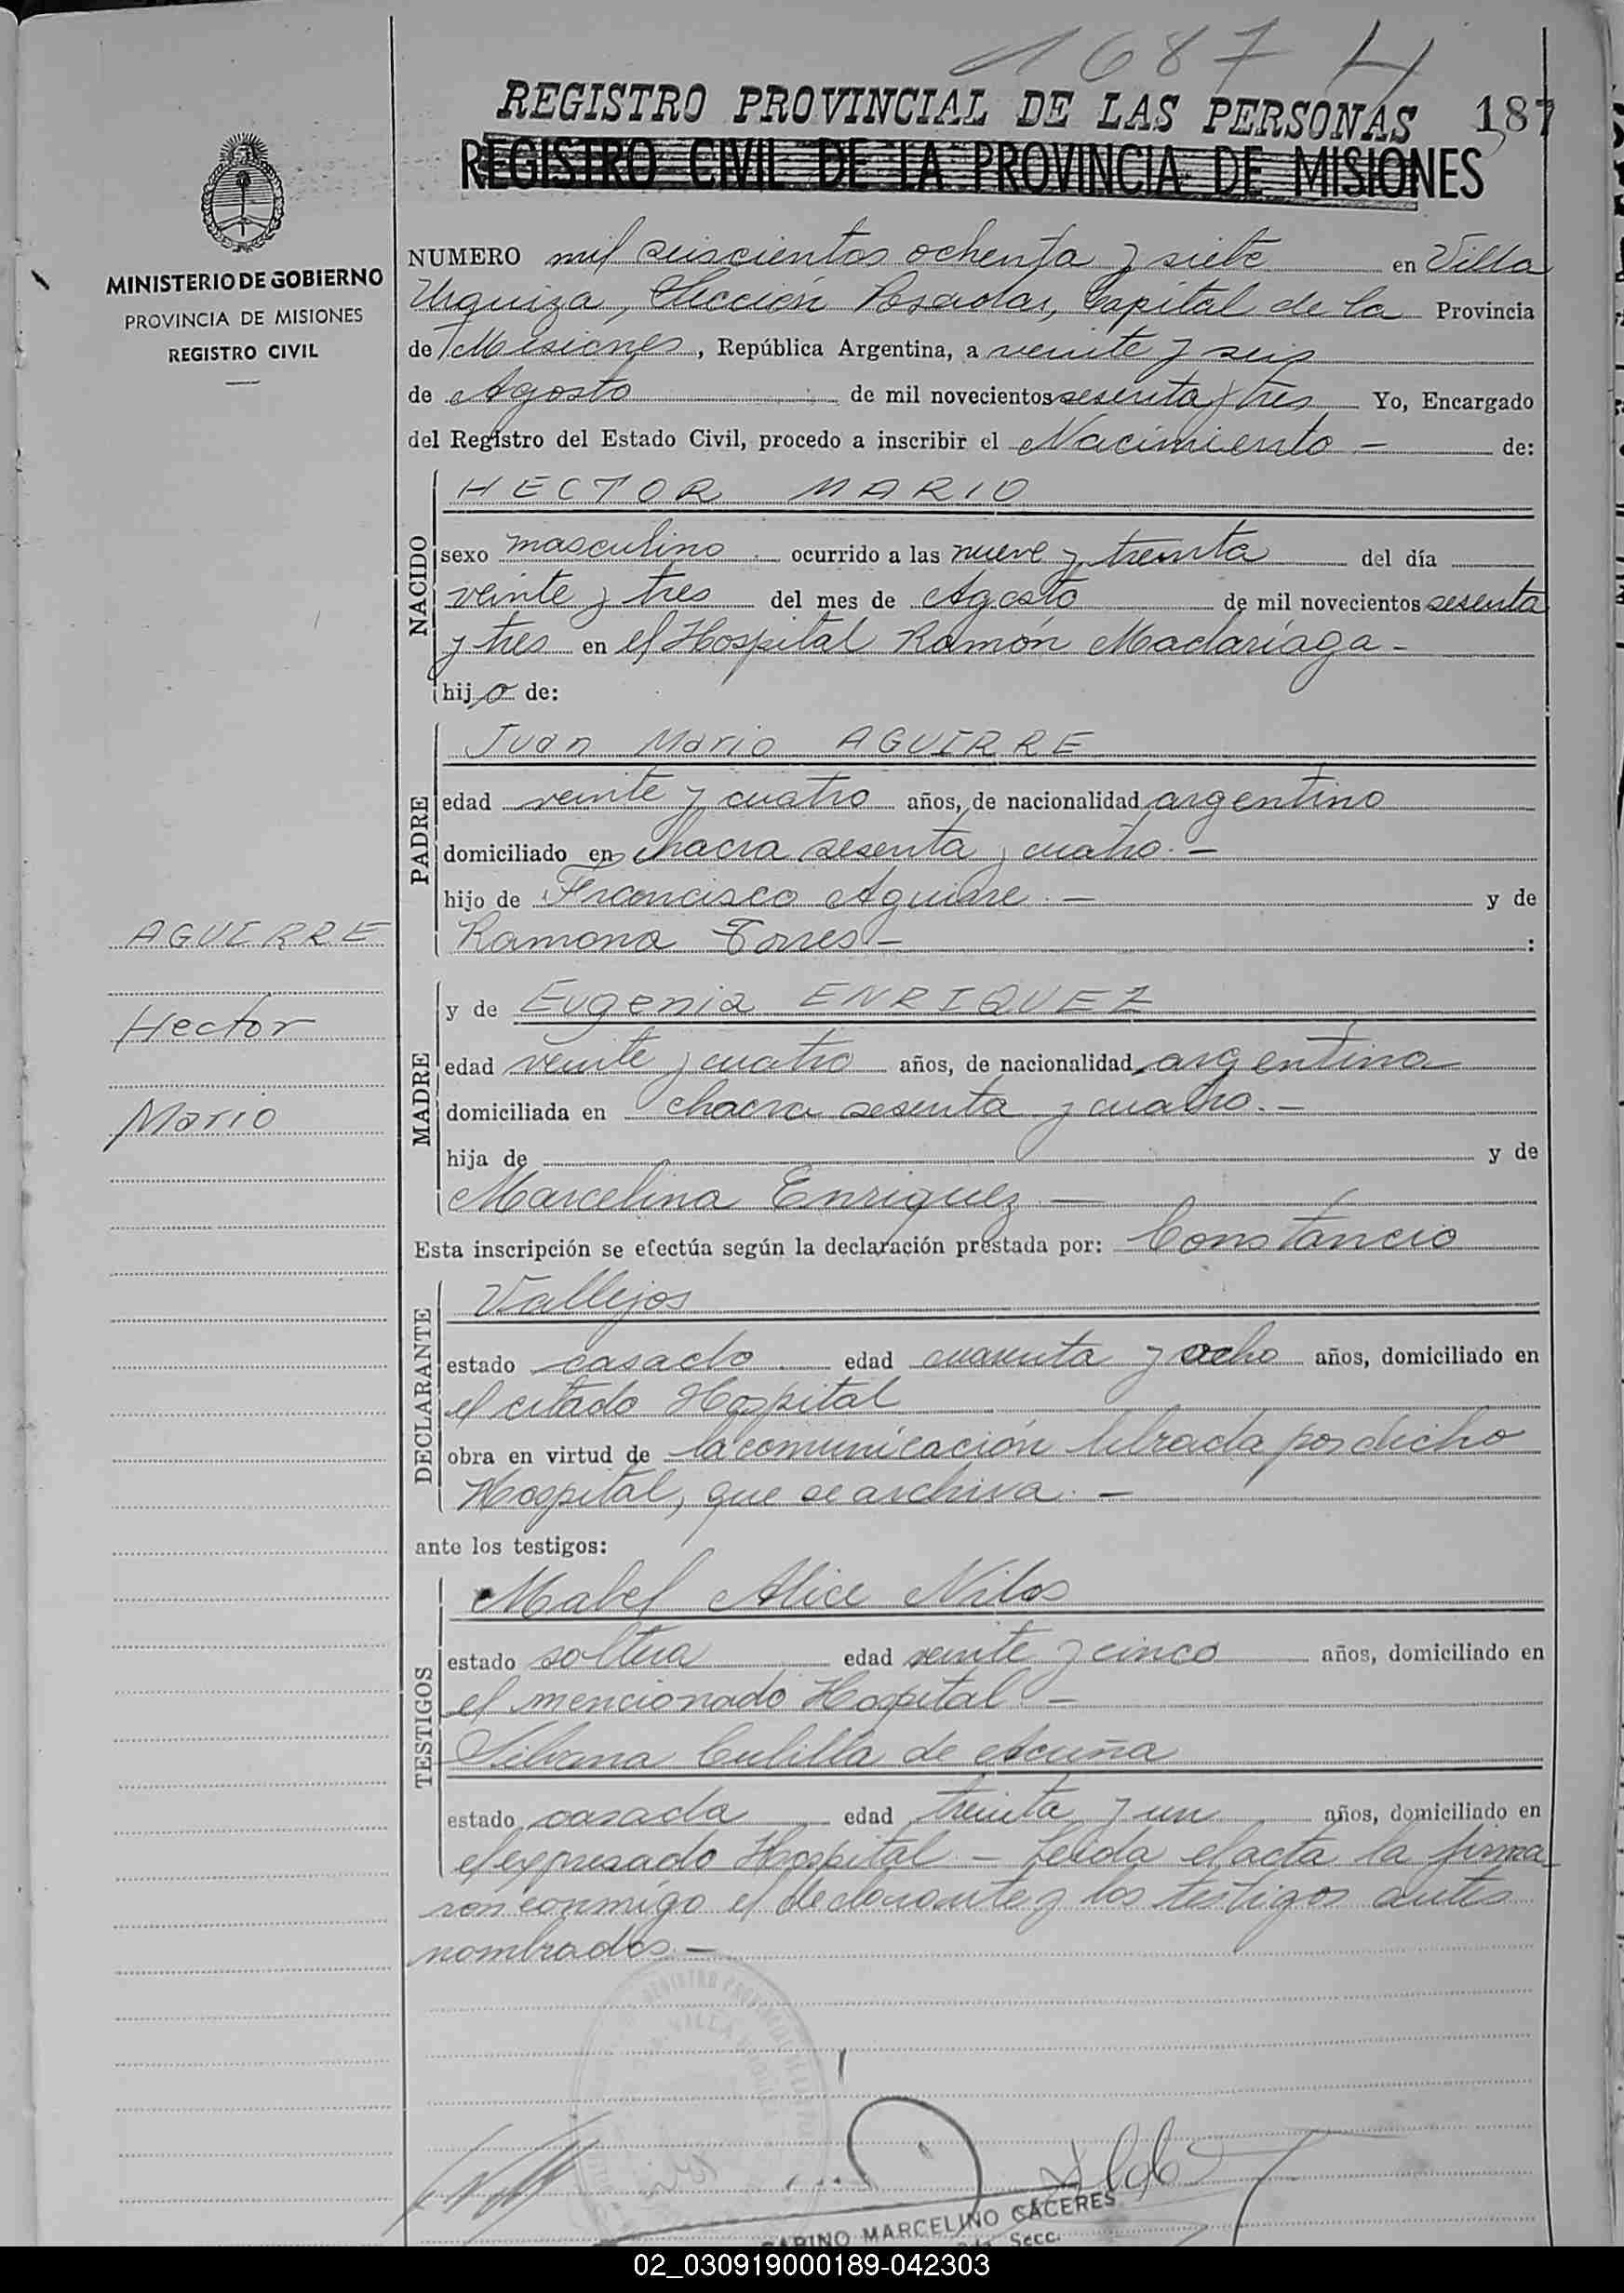 1687 H
REGISTRO PROVINCIAL DE LAS PERSONAS 187
REGISTRO CIVIL DE LA PROVINCIA DE MISIONES
MINISTERIO DE GOBIERNO
PROVINCIA DE MISIONES
REGISTRO CIVIL
NUMERO mil seiscientos ochenta y siete en Villa
Urquiza, Sección Posadas, Capital de la Provincia
de Misiones, República Argentina, a veinte y seis
de Agosto de mil novecientos sesenta y tres Yo, Encargado
del Registro del Estado Civil, procedo a inscribir el Nacimiento - de:
NACIDO
HECTOR MARIO
sexo masculino ocurrido a las nueve y treinta del día
veinte y tres del mes de Agosto de mil novecientos sesenta
y tres en el Hospital Ramón Madariaga -
hijo de:
PADRE
Juan Mario AGUIRRE
edad veinte y cuatro años, de nacionalidad argentino
domiciliado en chacra sesenta y cuatro. -
hijo de Francisco Aguirre - y de
Ramona Torres - :
AGUIRRE
Hector
Mario
MADRE
y de Eugenia ENRIQUEZ
edad veinte y cuatro años, de nacionalidad argentina
domiciliada en chacra sesenta y cuatro. -
hija de y de
Marcelina Enriquez -
Esta inscripción se efectúa según la declaración prestada por: Constancio
DECLARANTE
Vallejos
estado casado edad cuarenta y ocho años, domiciliado en
el citado Hospital
obra en virtud de la comunicación librada por dicho
Hospital, que se archiva. -
ante los testigos:
TESTIGOS
Mabel Alice Nilos
estado soltera edad veinte y cinco años, domiciliado en
el mencionado Hospital -
Silvana Culilla de Acuña
estado casada edad treinta y un años, domiciliado en
el expresado Hospital - Leida el acta la firma-
ron conmigo el declarante y los testigos antes
nombrados -
MARCELINO CACERES
Secc.
02_030919000189-042303